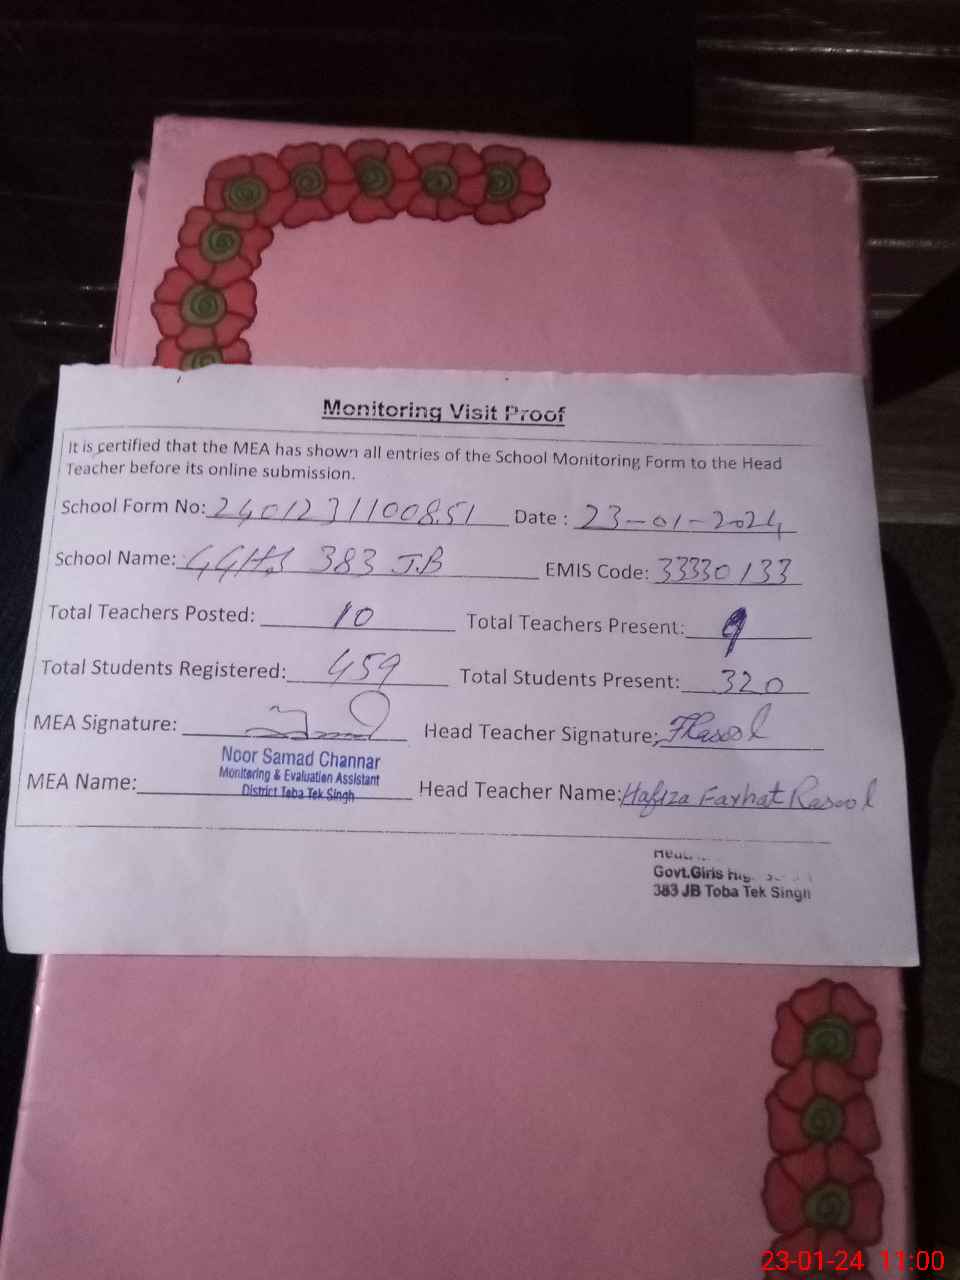 Monitoring Visit Proof
It is certified that the MEA has shown all entries of the School Monitoring Form to the Head
Teacher before its online submission.
School Form No: 24012311008.51 Date : 23-01-2024
School Name: GGHS 383 J.B EMIS Code: 33330133
Total Teachers Posted: 10 Total Teachers Present: 9
Total Students Registered: 459 Total Students Present: 320
MEA Signature: Head Teacher Signature: FRasool
Noor Samad Channar
Monitoring & Evaluation Assistant
District Toba Tek Singh
MEA Name: Head Teacher Name: Hafiza Farhat Rasool
Govt.Girls
383 JB Toba Tek Singh
23-01-24 11:00